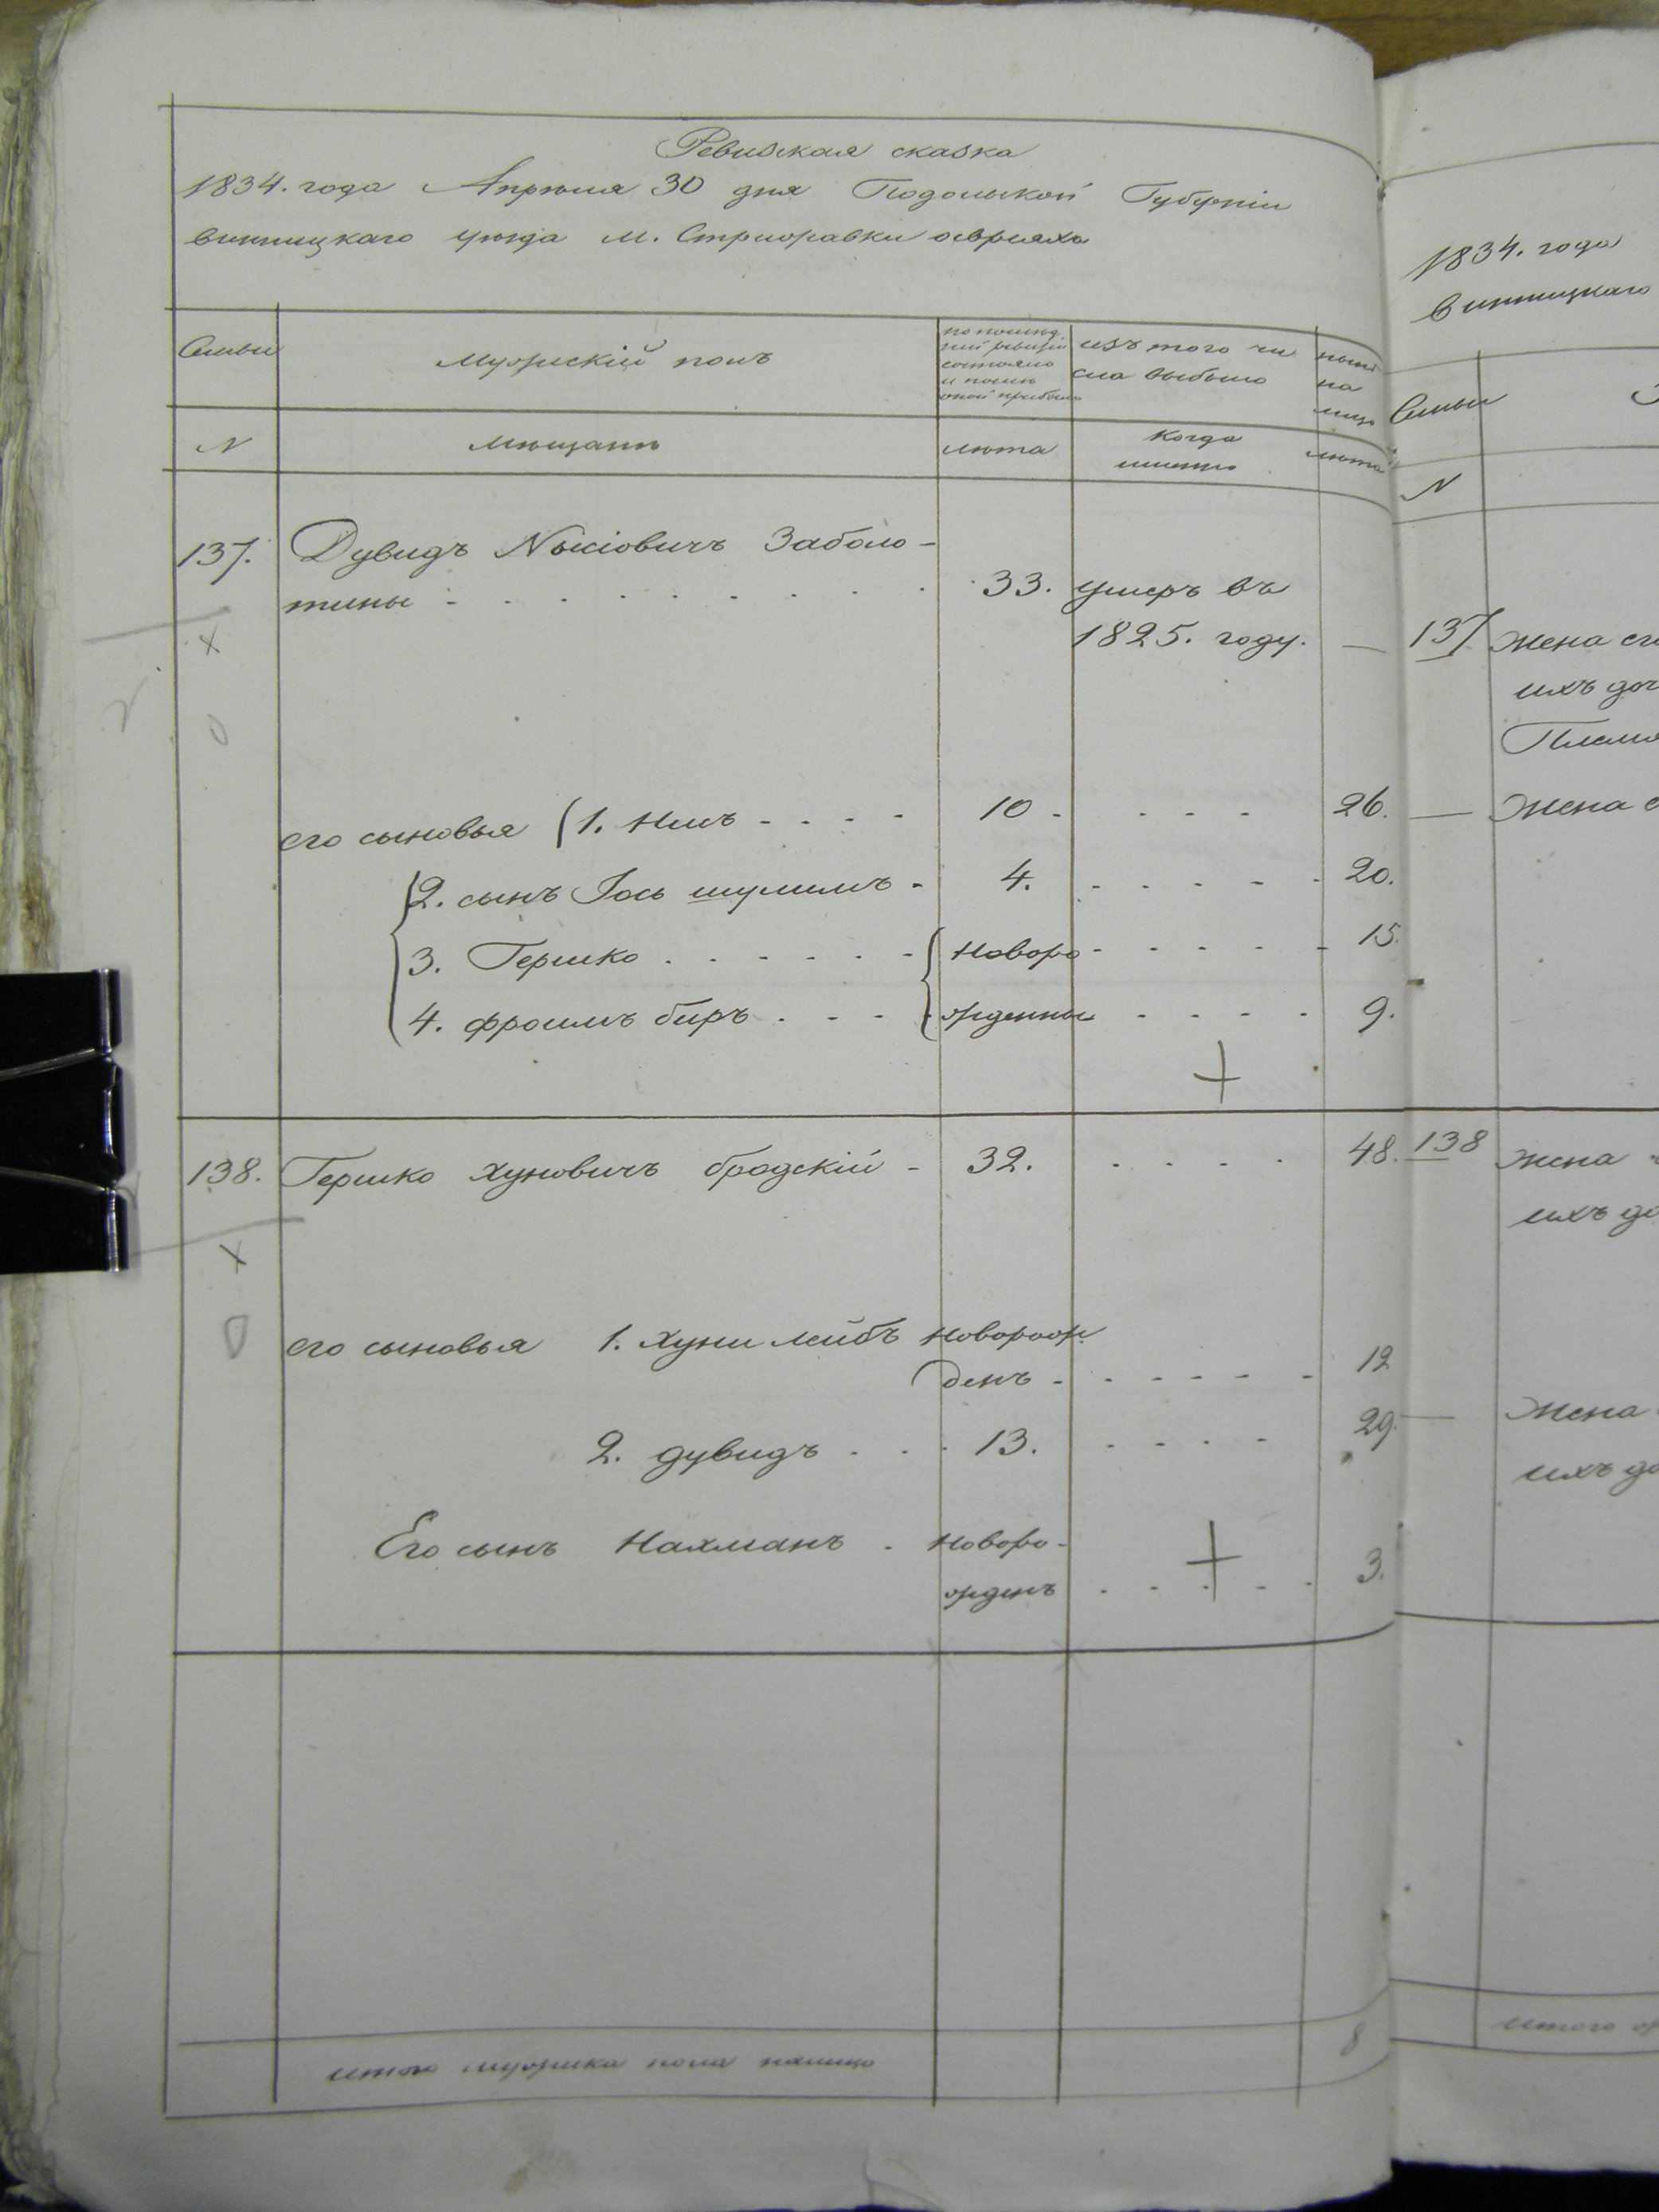 Ревизская сказка
1834. года Апреля 30 дня Подольской Губерніи
винницкаго уезда м. Стрижавки о евреяхъ
Семьи
Мужескій полъ
по послед
ней ревизіи
состояло
и после
оной прибыло
изъ того чи
сла выбыло
ныне
на
лицо
N
мещане
лета
когда
именно
лета
137. Дувидъ Нысіовичъ Заболо-
тины - 33. умеръ въ
1825. году. —
его сыновья 1. - 10 - 26.
2. сынъ Іось шулимъ - 4. - 20.
3. Гершко - новоро - 15.
4. фроимъ беръ - жденны - 9.
138. Гершко хуновичъ бродскій - 32. - 48.
его сыновья 1. хуни лейбъ новорож
денъ - 12
2. дувидъ - 13. - 29.
Его сынъ Нахманъ - новоро-
жденъ - 3.
итого мужеска пола налицо 8
1834. года
винницкаго
Семьи
N
137 жена его
ихъ доч
Племя
— жена
138 жена
ихъ до
— жена
ихъ до
итого